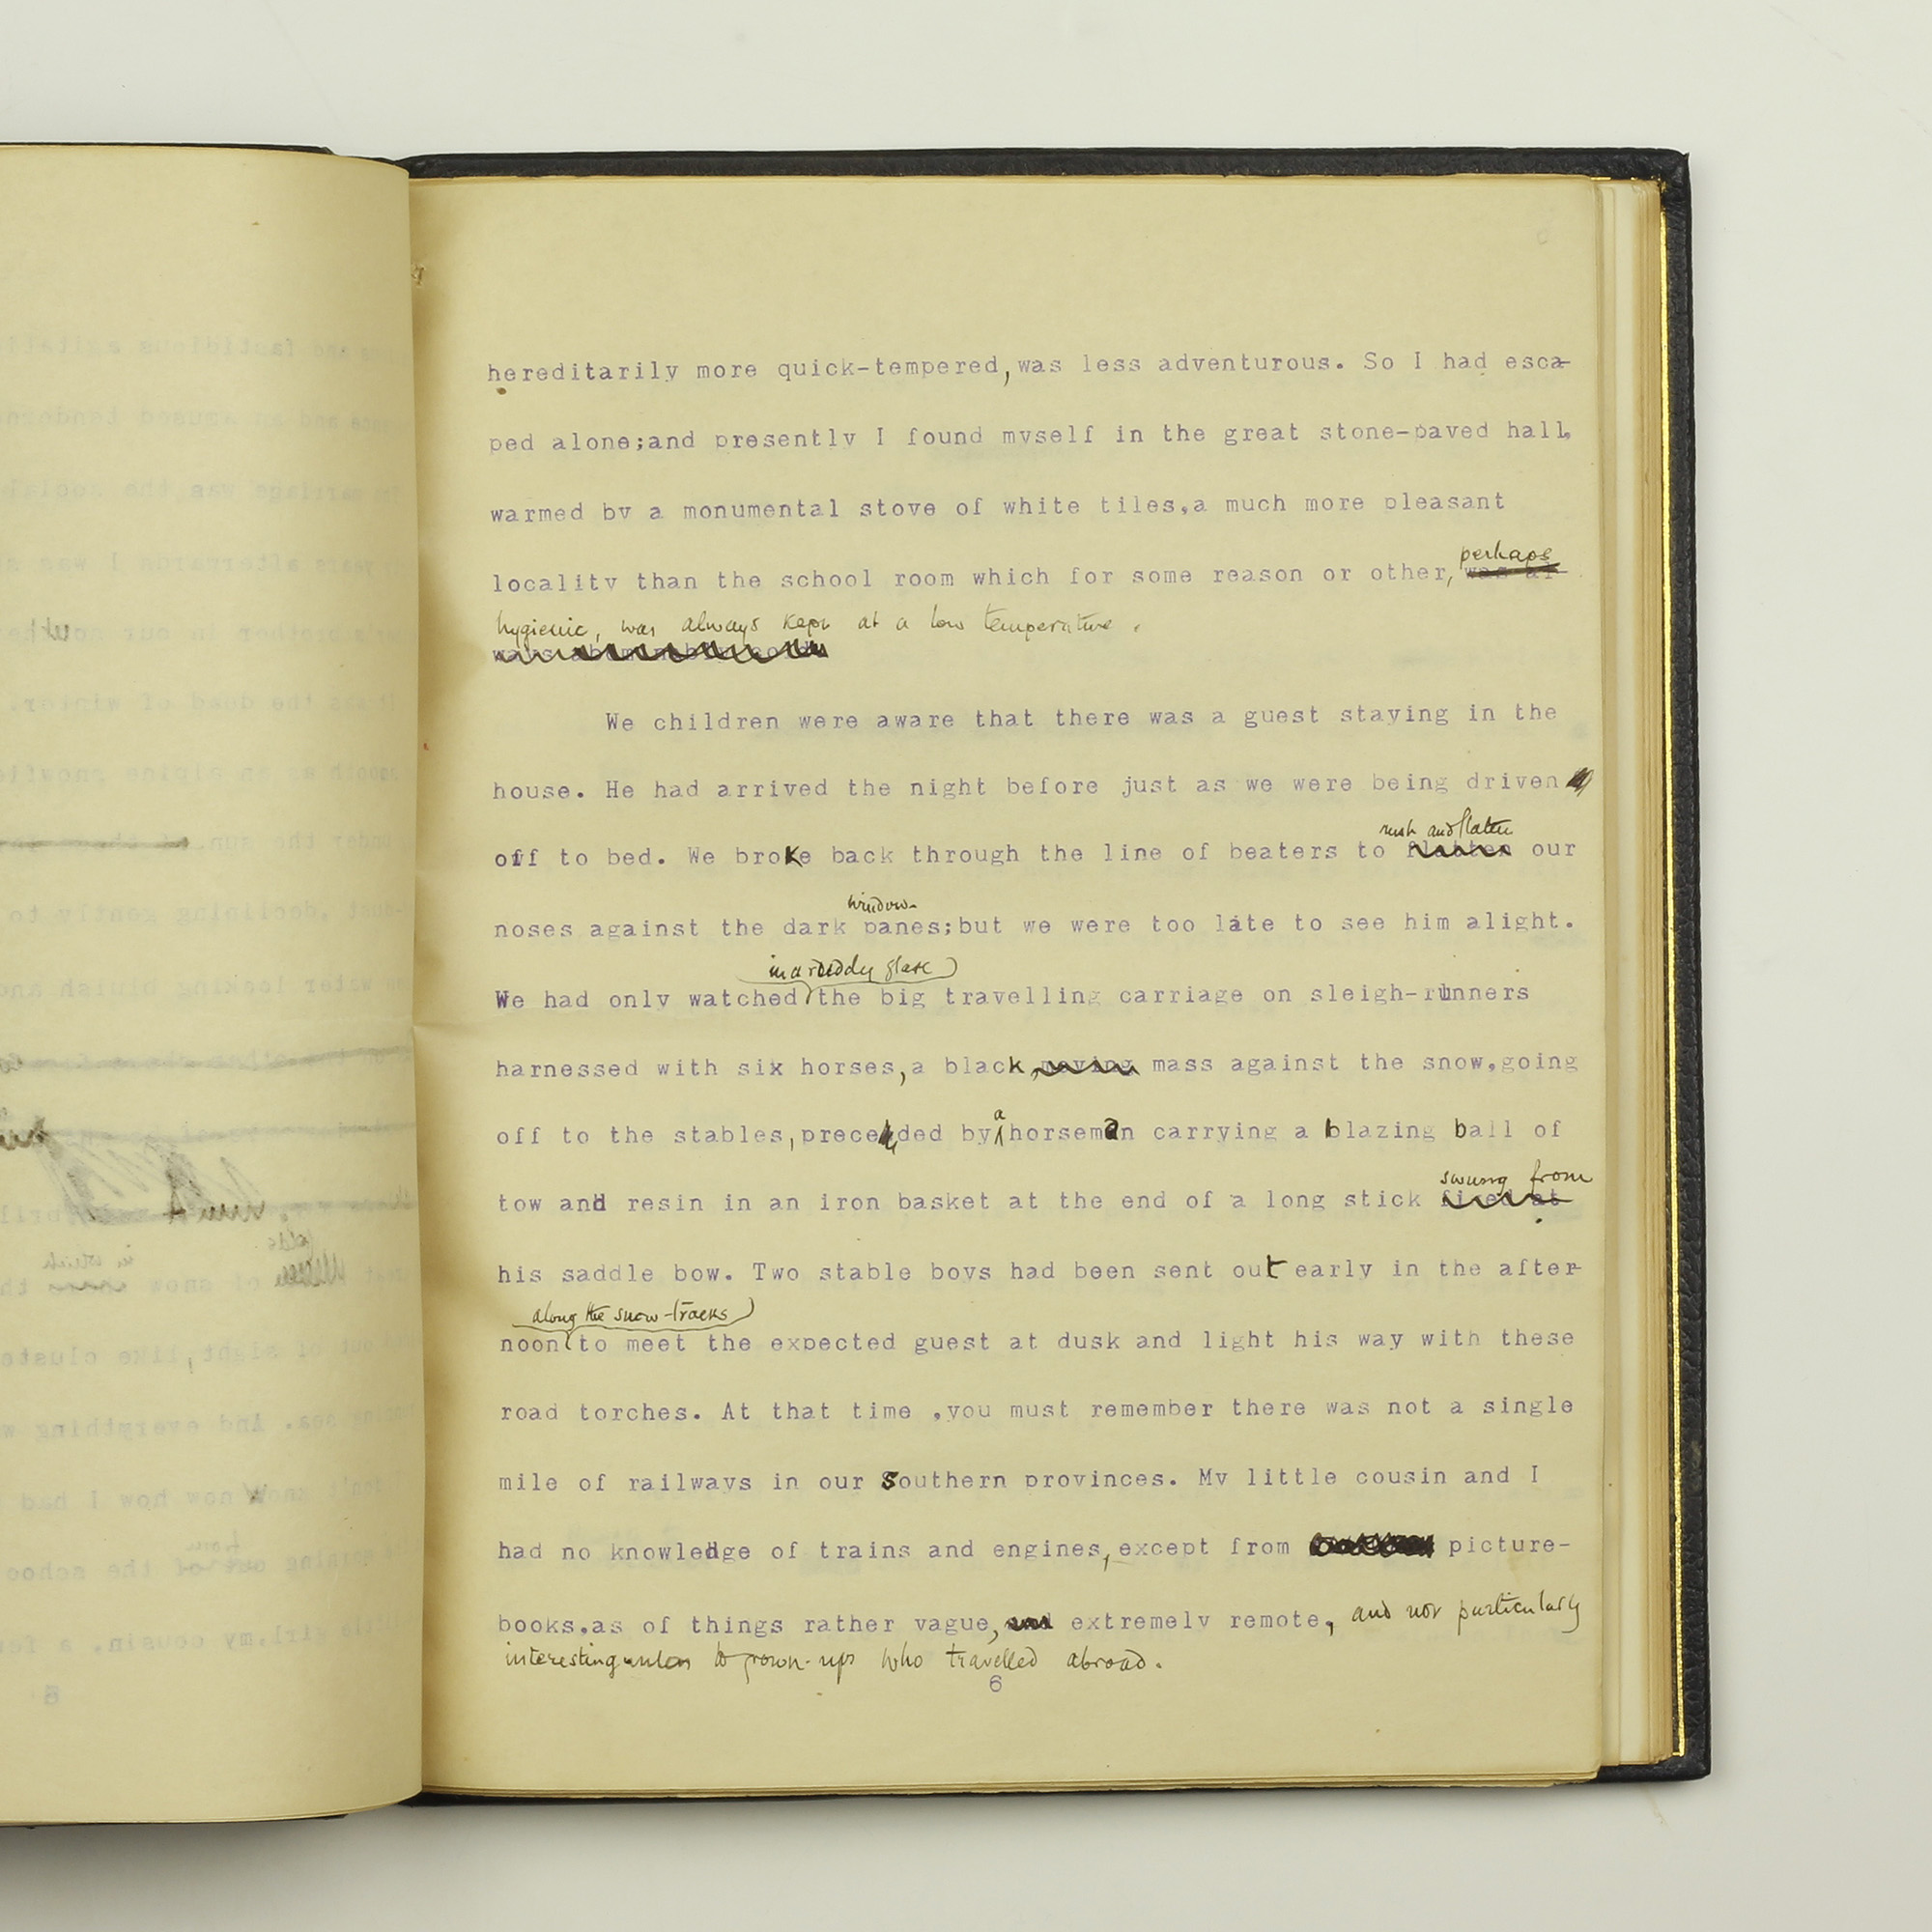 hereditarily more quick-tempered, was less adventurous. So I had esca-
ped alone;and presently I found myself in the great stone-paved hall,
warmed by a monumental stove of white tiles,a much more pleasant
perhaps
locality than the school room which for some reason or other, was al-
hygienic, was always kept at a low temperature.
ways abominably cold.
We children were aware that there was a guest staying in the
house. He had arrived the night before just as we were being driven
rush and flatten
off to bed. We broke back through the line of beaters to flatten our
window-
noses against the dark panes;but we were too late to see him alight.
in a ruddy glare
We had only watched the big travelling carriage on sleigh-runners
harnessed with six horses,a black, moving mass against the snow,going
a
off to the stables,preceded by horseman carrying a blazing ball of
swung from
tow and resin in an iron basket at the end of a long stick fixed at
his saddle bow. Two stable boys had been sent out early in the after-
along the snow-tracks
noon to meet the expected guest at dusk and light his way with these
road torches. At that time ,you must remember there was not a single
mile of railways in our Southern provinces. My little cousin and I
had no knowledge of trains and engines, except from picture-
books,as of things rather vague, and extremely remote, and not particularly
interesting unless to grown-ups who travelled abroad.
6